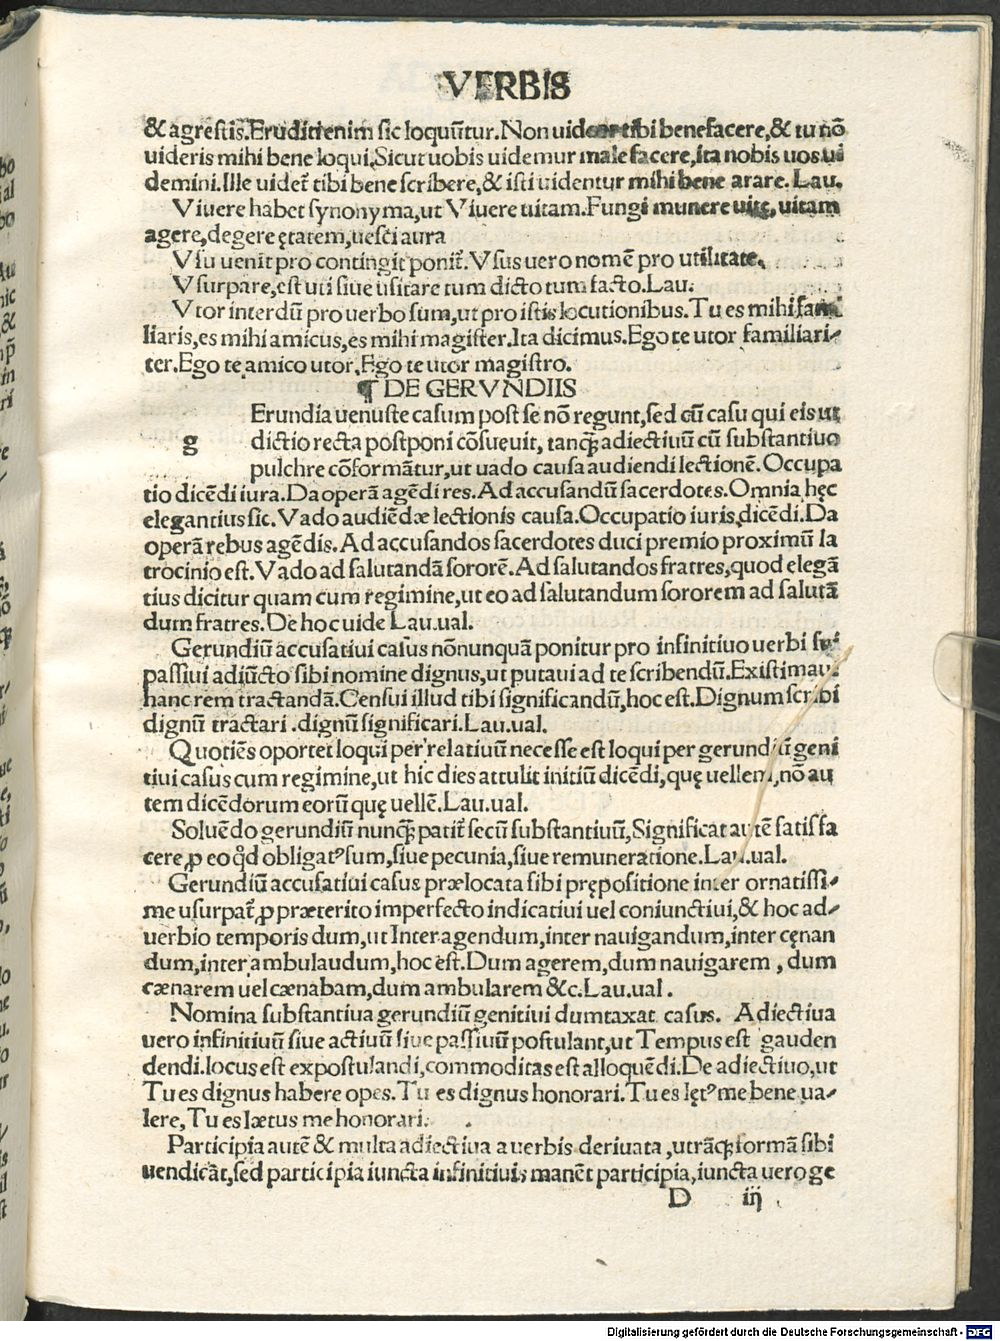 VERBIS
& agrestis. Eruditi enim sic loquũtur. Non uideor tibi benefacere, & tu nõ
uideris mihi bene loqui. Sicut uobis uidemur male facere, ita nobis uos ui
demini. Ille uidet̃ tibi bene scribere, & isti uidentur mihi bene arare. Lau.
Viuere habet synonyma, ut Viuere uitam. Fungi munere uitę, uitam
agere, degere ętatem, uesci aura
Vsu uenit pro contingit ponit̃. Vsus uero nomẽ pro utilitate.
Vsurpare, est uti siue usitare tum dicto tum facto. Lau.
Vtor interdũ pro uerbo sum, ut pro istis locutionibus. Tu es mihi fami
liaris, es mihi amicus, es mihi magister. Ita dicimus. Ego te utor familiari⸗
ter. Ego te amico utor. Ego te utor magistro.
¶ DE GERVNDIIS
Erundia uenuste casum post se nõ regunt, sed cũ casu qui eis ut
g dictio recta postponi cõsueuit, tanq̃ adiectiuũ cũ substantiuo
pulchre cõformãtur, ut uado causa audiendi lectionẽ. Occupa
tio dicẽdi iura. Da operã agẽdi res. Ad accusandũ sacerdotes. Omnia hęc
elegantius sic. Vado audiẽdæ lectionis causa. Occupatio iuris dicẽdi. Da
operã rebus agẽdis. Ad accusandos sacerdotes duci premio proximũ la
trocinio est. Vado ad salutandã sororẽ. Ad salutandos fratres, quod elegã
tius dicitur quam cum regimine, ut eo ad salutandum sororem ad salutã
dum fratres. De hoc uide Lau. ual.
Gerundiũ accusatiui casus nõnunquã ponitur pro infinitiuo uerbi sui
passiui adiũcto sibi nomine dignus, ut putaui ad te scribendũ. Existimaui
hanc rem tractandã. Censui illud tibi significandũ, hoc est. Dignum scribi
dignũ tractari. dignũ significari. Lau. ual.
Quotiẽs oportet loqui per relatiuũ necesse est loqui per gerundiũ geni
tiui casus cum regimine, ut hic dies attulit initiũ dicẽdi, quę uellem, nõ au
tem dicẽdorum eorũ quę uellẽ. Lau. ual.
Soluẽdo gerundiũ nunq̃ patit̃ secũ substantiuũ, Significat autẽ satisfa
cere, ꝑ eo qd̃ obligatꝰ sum, siue pecunia, siue remuneratione. Lau. ual.
Gerundiũ accusatiui casus prælocata sibi prępositione inter ornatissi⸗
me usurpat̃ ꝑ præterito imperfecto indicatiui uel coniunctiui, & hoc ad⸗
uerbio temporis dum, ut Inter agendum, inter nauigandum, inter cęnan
dum, inter ambulaudum, hoc est. Dum agerem, dum nauigarem, dum
cænarem uel cænabam, dum ambularem &c. Lau. ual.
Nomina substantiua gerundiũ genitiui dumtaxat casus. Adiectiua
uero infinitiuũ siue actiuũ siue passiuũ postulant, ut Tempus est gauden
dendi. locus est expostulandi, commoditas est alloquẽdi. De adiectiuo, ut
Tu es dignus habere opes. Tu es dignus honorari. Tu es lętꝰ me bene ua⸗
lere, Tu es lætus me honorari.
Participia autẽ & multa adiectiua a uerbis deriuata, utrãq̃ formã sibi
uendicãt, sed participia iuncta infinitiuis manẽt participia, iuncta uero ge
D iij
Digitalisierung gefördert durch die Deutsche Forschungsgemeinschaft - DFG